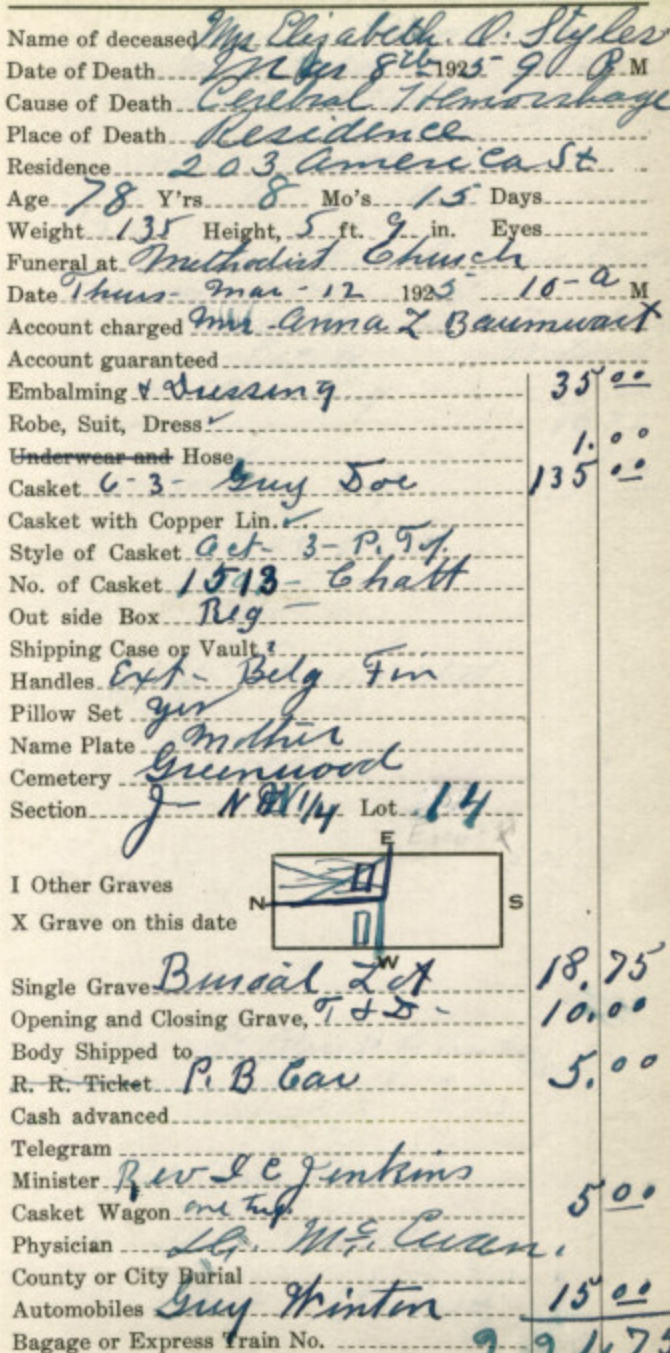 Name of deceased Mrs Elizabeth. O. Styles
Date of Death Mar 8th 1925 9 P M
Cause of Death Cerebral Hemorrhage
Place of Death Residence
Residence 203 America St
Age 78 Y'rs 8 Mo's 15 Days
Weight 135 Height, 5 ft. 9 in. Eyes
Funeral at Methodist Church
Date Thurs- Mar- 12 1925 10-a M
Account charged Mrs Anna L Baumwart
Account guaranteed
Embalming & Dressing 35 00
Robe, Suit, Dress
Underwear and Hose 1.00
Casket 6-3- Doe 135 00
Casket with Copper Lin.
Style of Casket Oct- 3-P.
No. of Casket 1513- Chatt
Out side Box Reg -
Shipping Case or Vault
Handles Ext- Belg Fin
Pillow Set yes
Name Plate Mother
Cemetery Greenwood
Section J- NW 1/4 Lot 14
E
I Other Graves
N S
X Grave on this date
W
Single Grave Burial Lot 18.75
Opening and Closing Grave, T & D - 10.00
Body Shipped to
R. R. Ticket P. B Car 5.00
Cash advanced
Telegram
Minister Rev I C Jenkins
Casket Wagon one trip 5 00
Physician Mc Ewan.
County or City Burial
Automobiles Guy Winton 15 00
Bagage or Express Train No.